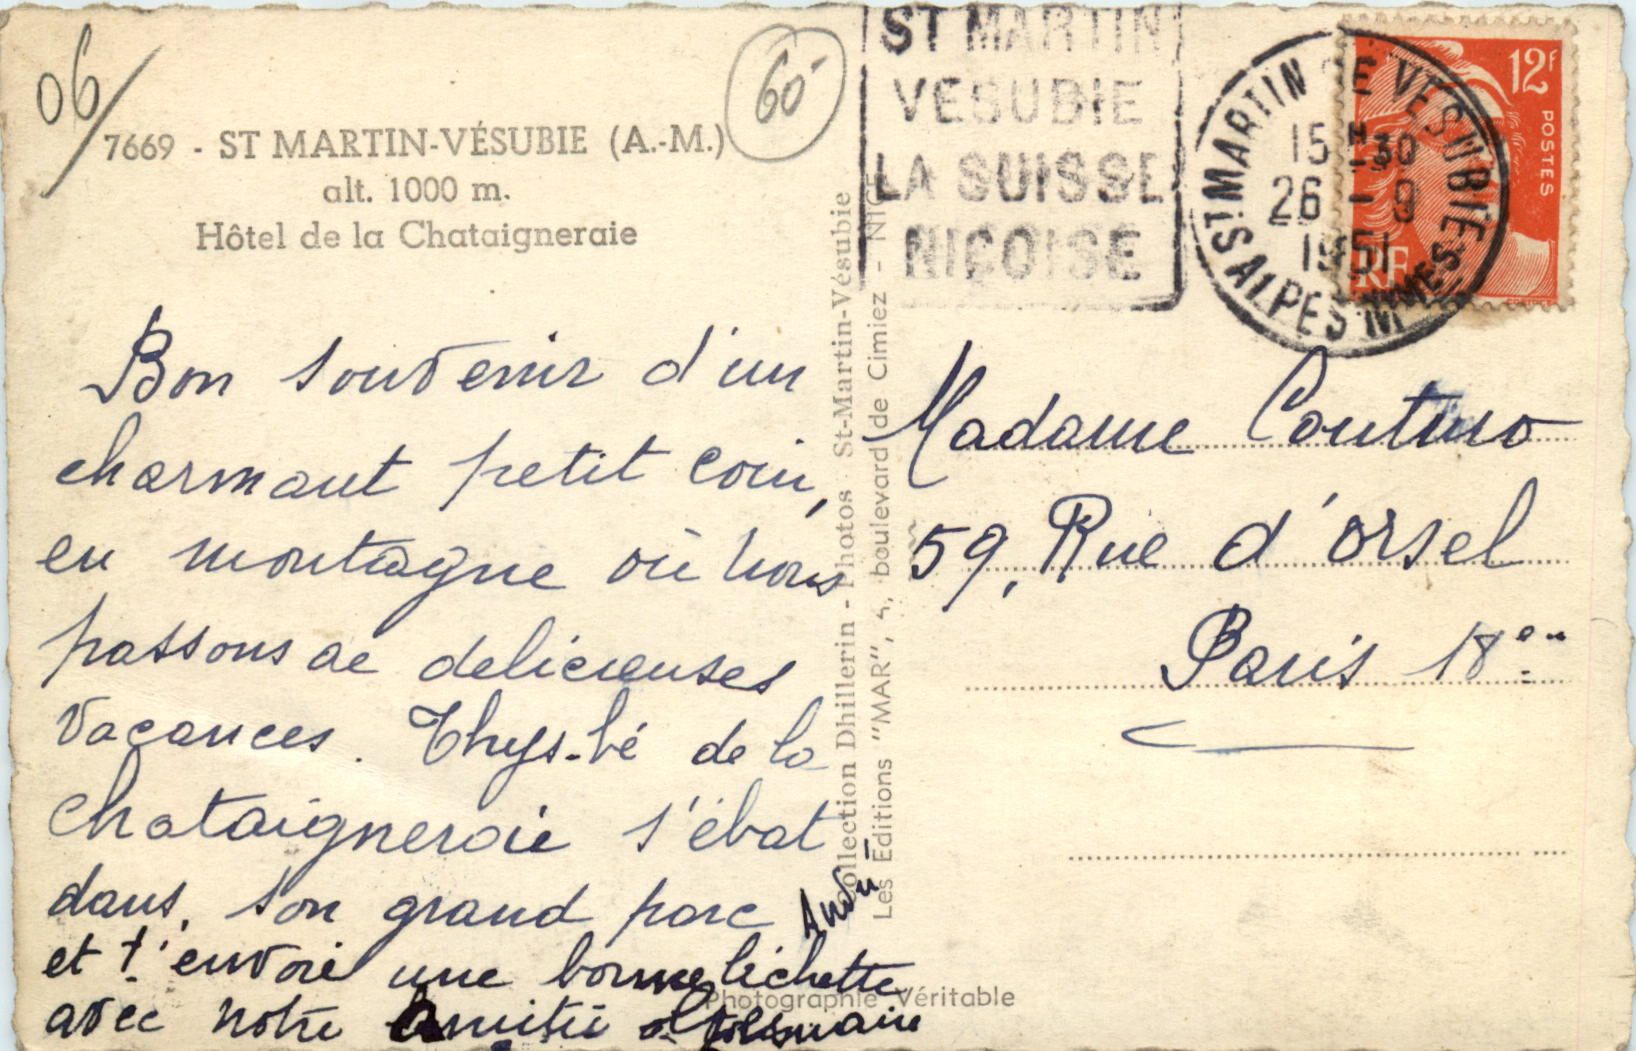 06/
60-
7669 - ST MARTIN-VÉSUBIE (A.-M.)
alt. 1000 m.
Hôtel de la Chataigneraie
ST MARTIN
VESUBIE
LA SUISSE
NIÇOISE
ST MARTIN DE VESUBIE
15 H 30
26 - 9
1951
ALPES MMES
12F
POSTES
RF
Bon souvenir d'un
charmant petit coin,
en montagne où nous
passons de delicieuses
vacances. Thys-bé de la
Chataigneraie s'ébat
dans, son grand parc
et t'envoie une bonne lichette
avec notre amitié
André
Collection Dhillerin - Photos St-Martin-Vésubie
Les Editions "MAR", 4, boulevard de Cimiez - NICE
Madame
59, Rue d'orsel
Paris 18e
Photographie Véritable